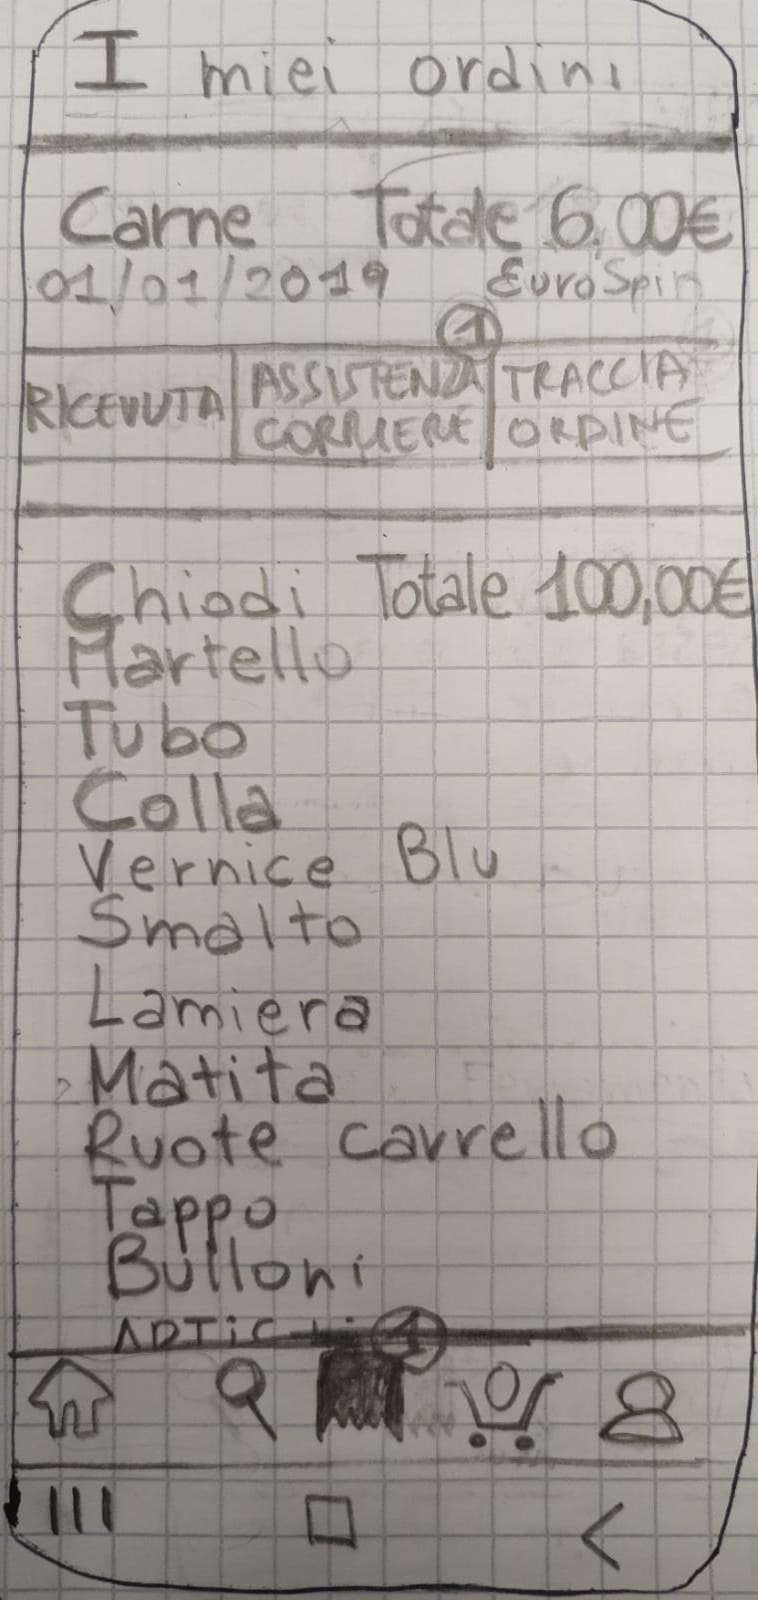 I miei ordini
Carne Totale 6,00€
01/01/2019 EuroSpin
1
RICEVUTA ASSISTENZA TRACCIA
CORRIERE ORDINE
Chiodi Totale 100,00€
Martello
Tubo
Colla
Vernice Blu
Smalto
Lamiera
Matita
Ruote carrello
Tappo
Bulloni
1
0